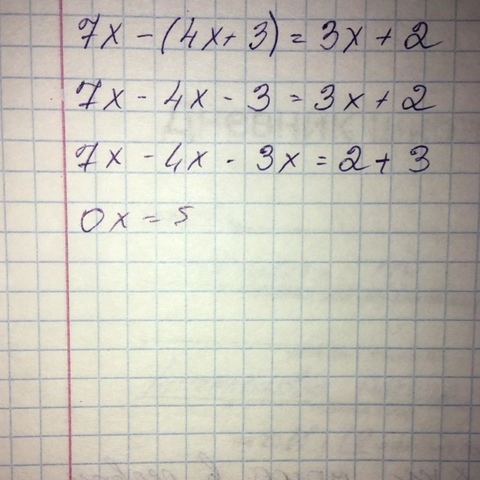 7x - (4x + 3) = 3x + 2
7x - 4x - 3 = 3x + 2
7x - 4x - 3x = 2 + 3
0x = 5